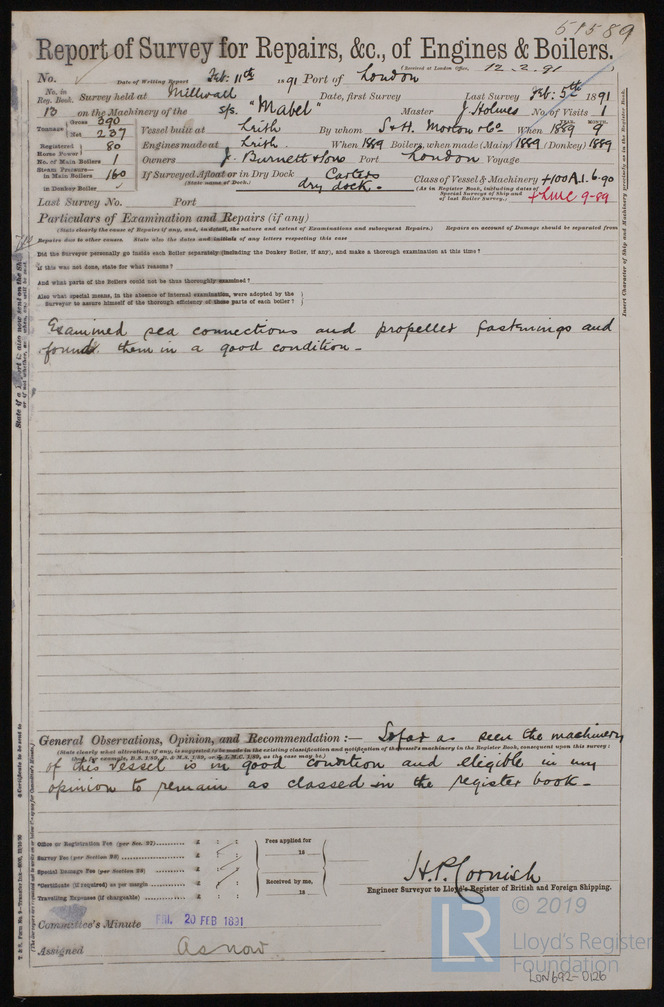 51589
Report of Survey for Repairs, &c., of Engines & Boilers.
(Received at London Office, 12.2.91 )
No. Date of Writing Report Feb: 11th 1891 Port of London
No. in Reg. Book. Survey held at Millwall Date, first Survey Last Survey Feb: 5th 1891
13 on the Machinery of the S/s. "Mabel" Master J. Holmes No. of Visits 1
Tonnage Gross 390 Net 237 Vessel built at Erith By whom S & H. Morton & Co When YEAR. 1889 MONTH. 9
Registered Horse Power 80 Engines made at Erith. When 1889 Boilers, when made (Main) 1889 (Donkey) 1889
No. of Main Boilers 1 Owners J. Burnett & Sons Port London Voyage
Steam Pressure— in Main Boilers 160 If Surveyed Afloat or in Dry Dock Carters dry dock. Class of Vessel & Machinery +100A.1. 6.90
in Donkey Boiler (State name of Dock.) (As in Register Book, including dates of Special Surveys of Ship and of last Boiler Survey.) +LMC 9-89
Last Survey No. Port
Particulars of Examination and Repairs (if any)
(State clearly the cause of Repairs if any, and, in detail, the nature and extent of Examinations and subsequent Repairs.) Repairs on account of Damage should be separated from
Repairs due to other causes. State also the dates and initials of any letters respecting this case
Did the Surveyor personally go inside each Boiler separately (including the Donkey Boiler, if any), and make a thorough examination at this time?
If this was not done, state for what reasons?
And what parts of the Boilers could not be thus thoroughly examined?
Also what special means, in the absence of internal examination, were adopted by the
Surveyor to assure himself of the thorough efficiency of these parts of each boiler?
Examined sea connections and propeller fastenings and
found them in a good condition.
General Observations, Opinion, and Recommendation :— So far as seen the machinery
(State clearly what alteration, if any, is suggested to be made in the existing classification and notification of the vessel's machinery in the Register Book, consequent upon this survey;
of this vessel is in good condition and eligible in my
opinion to remain as classed in the register book.
Office or Registration Fee (per Sec. 27) £ : : Fees applied for
Survey Fee (per Section 28) £ : : 18
Special Damage Fee (per Section 28) £ : :
*Certificate (if required) as per margin £ : : Received by me,
Travelling Expenses (if chargeable) £ : : 18
H.P. Cornish
Engineer Surveyor to Lloyd's Register of British and Foreign Shipping.
Committee's Minute FRI. 20 FEB 1891
Assigned As now
Insert Character of Ship and Machinery precisely as in the Register Book.
LR
© 2019
Lloyd's Register
Foundation
LON692-0126